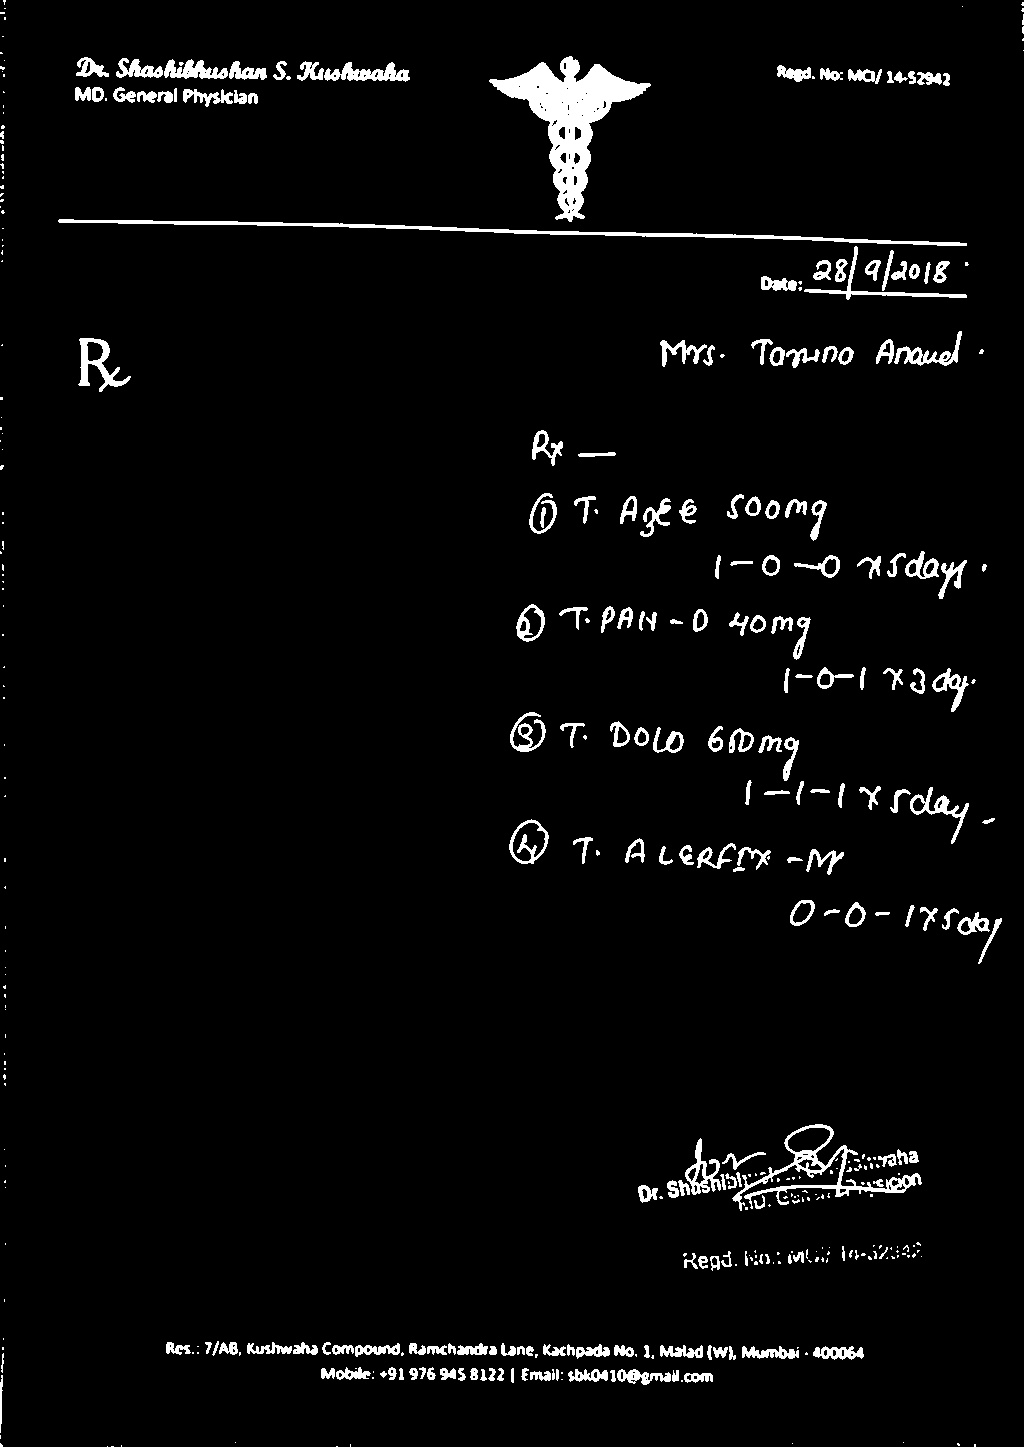 Dr. Shashibhushan S. Kushwaha
MD. General Physician
Regd. No: MCI/ 14-52942
Date: 28/9/2018
Rx
Mrs.
Rx —
① T. Azee 500mg
1-0-0 x 5days.
② T. PAN-D 40mg
1-0-1 x 3 day.
③ T. DOLO 650mg
1-1-1 x 5day
④ T. ALERFIX-M
0-0-1 x 5day
for
Dr.
MD. Physician
Regd. No.: MCI/ 14-52942
Res.: 7/AB, Kushwaha Compound, Ramchandra Lane, Kachpada No. 1, Malad (W), Mumbai - 400064
Mobile: +91 976 945 8122 | Email: sbk0410@gmail.com